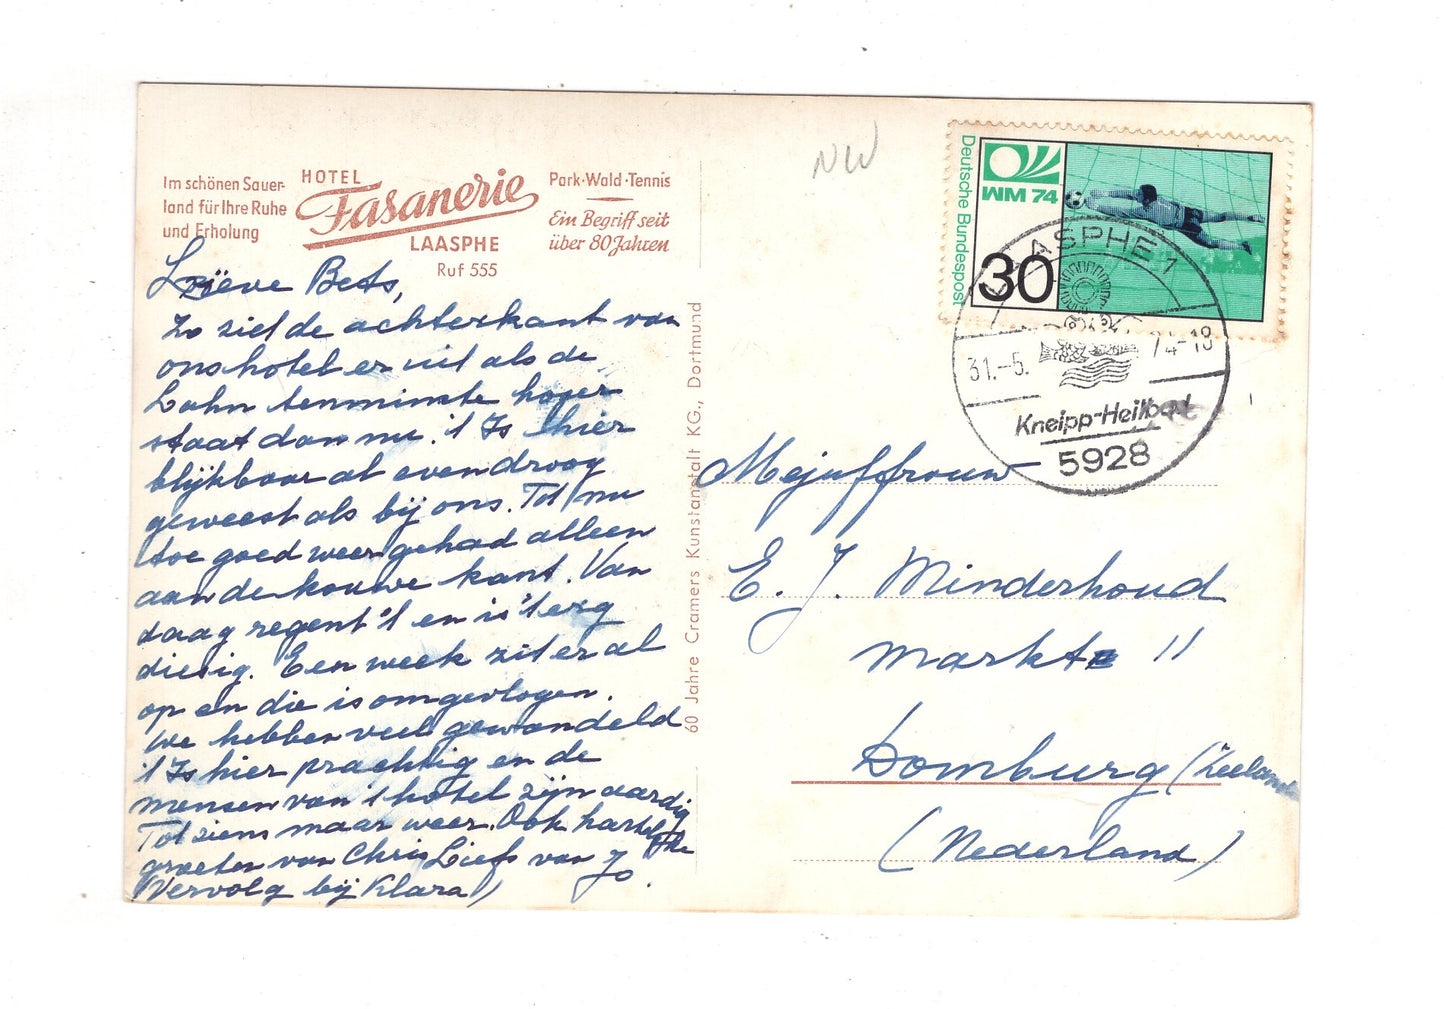 Im schönen Sauer-
land für Ihre Ruhe
und Erholung
HOTEL
Fasanerie
LAASPHE
Ruf 555
Park·Wald·Tennis
Ein Begriff seit
über 80 Jahren
Lieve Bets,
Zo ziet de achterkant van
ons hotel er uit als de
Lahn tenminste hoger
staat dan nu. 't Is hier
blijkbaar al even droog
geweest als bij ons. Tot nu
toe goed weer gehad alleen
aan de kouwe kant. Van
daag regent 't en is 't erg
diesig. Een week zit er al
op en die is omgevlogen.
We hebben veel gewandeld
't Is hier prachtig en de
mensen van 't hotel zijn aardig
Tot ziens maar weer. Ook hartelijke
groeten van Chris Liefs van Jo.
(Vervolg bij Klara)
60 Jahre Cramers Kunstanstalt KG., Dortmund
NW
Deutsche Bundespost
WM 74
30
LAASPHE 1
31.-5. 74-18
Kneipp-Heilbad
5928
Mejuffrouw
E. J. Minderhoud
Markt 11
Domburg (Zeeland
(Nederland)